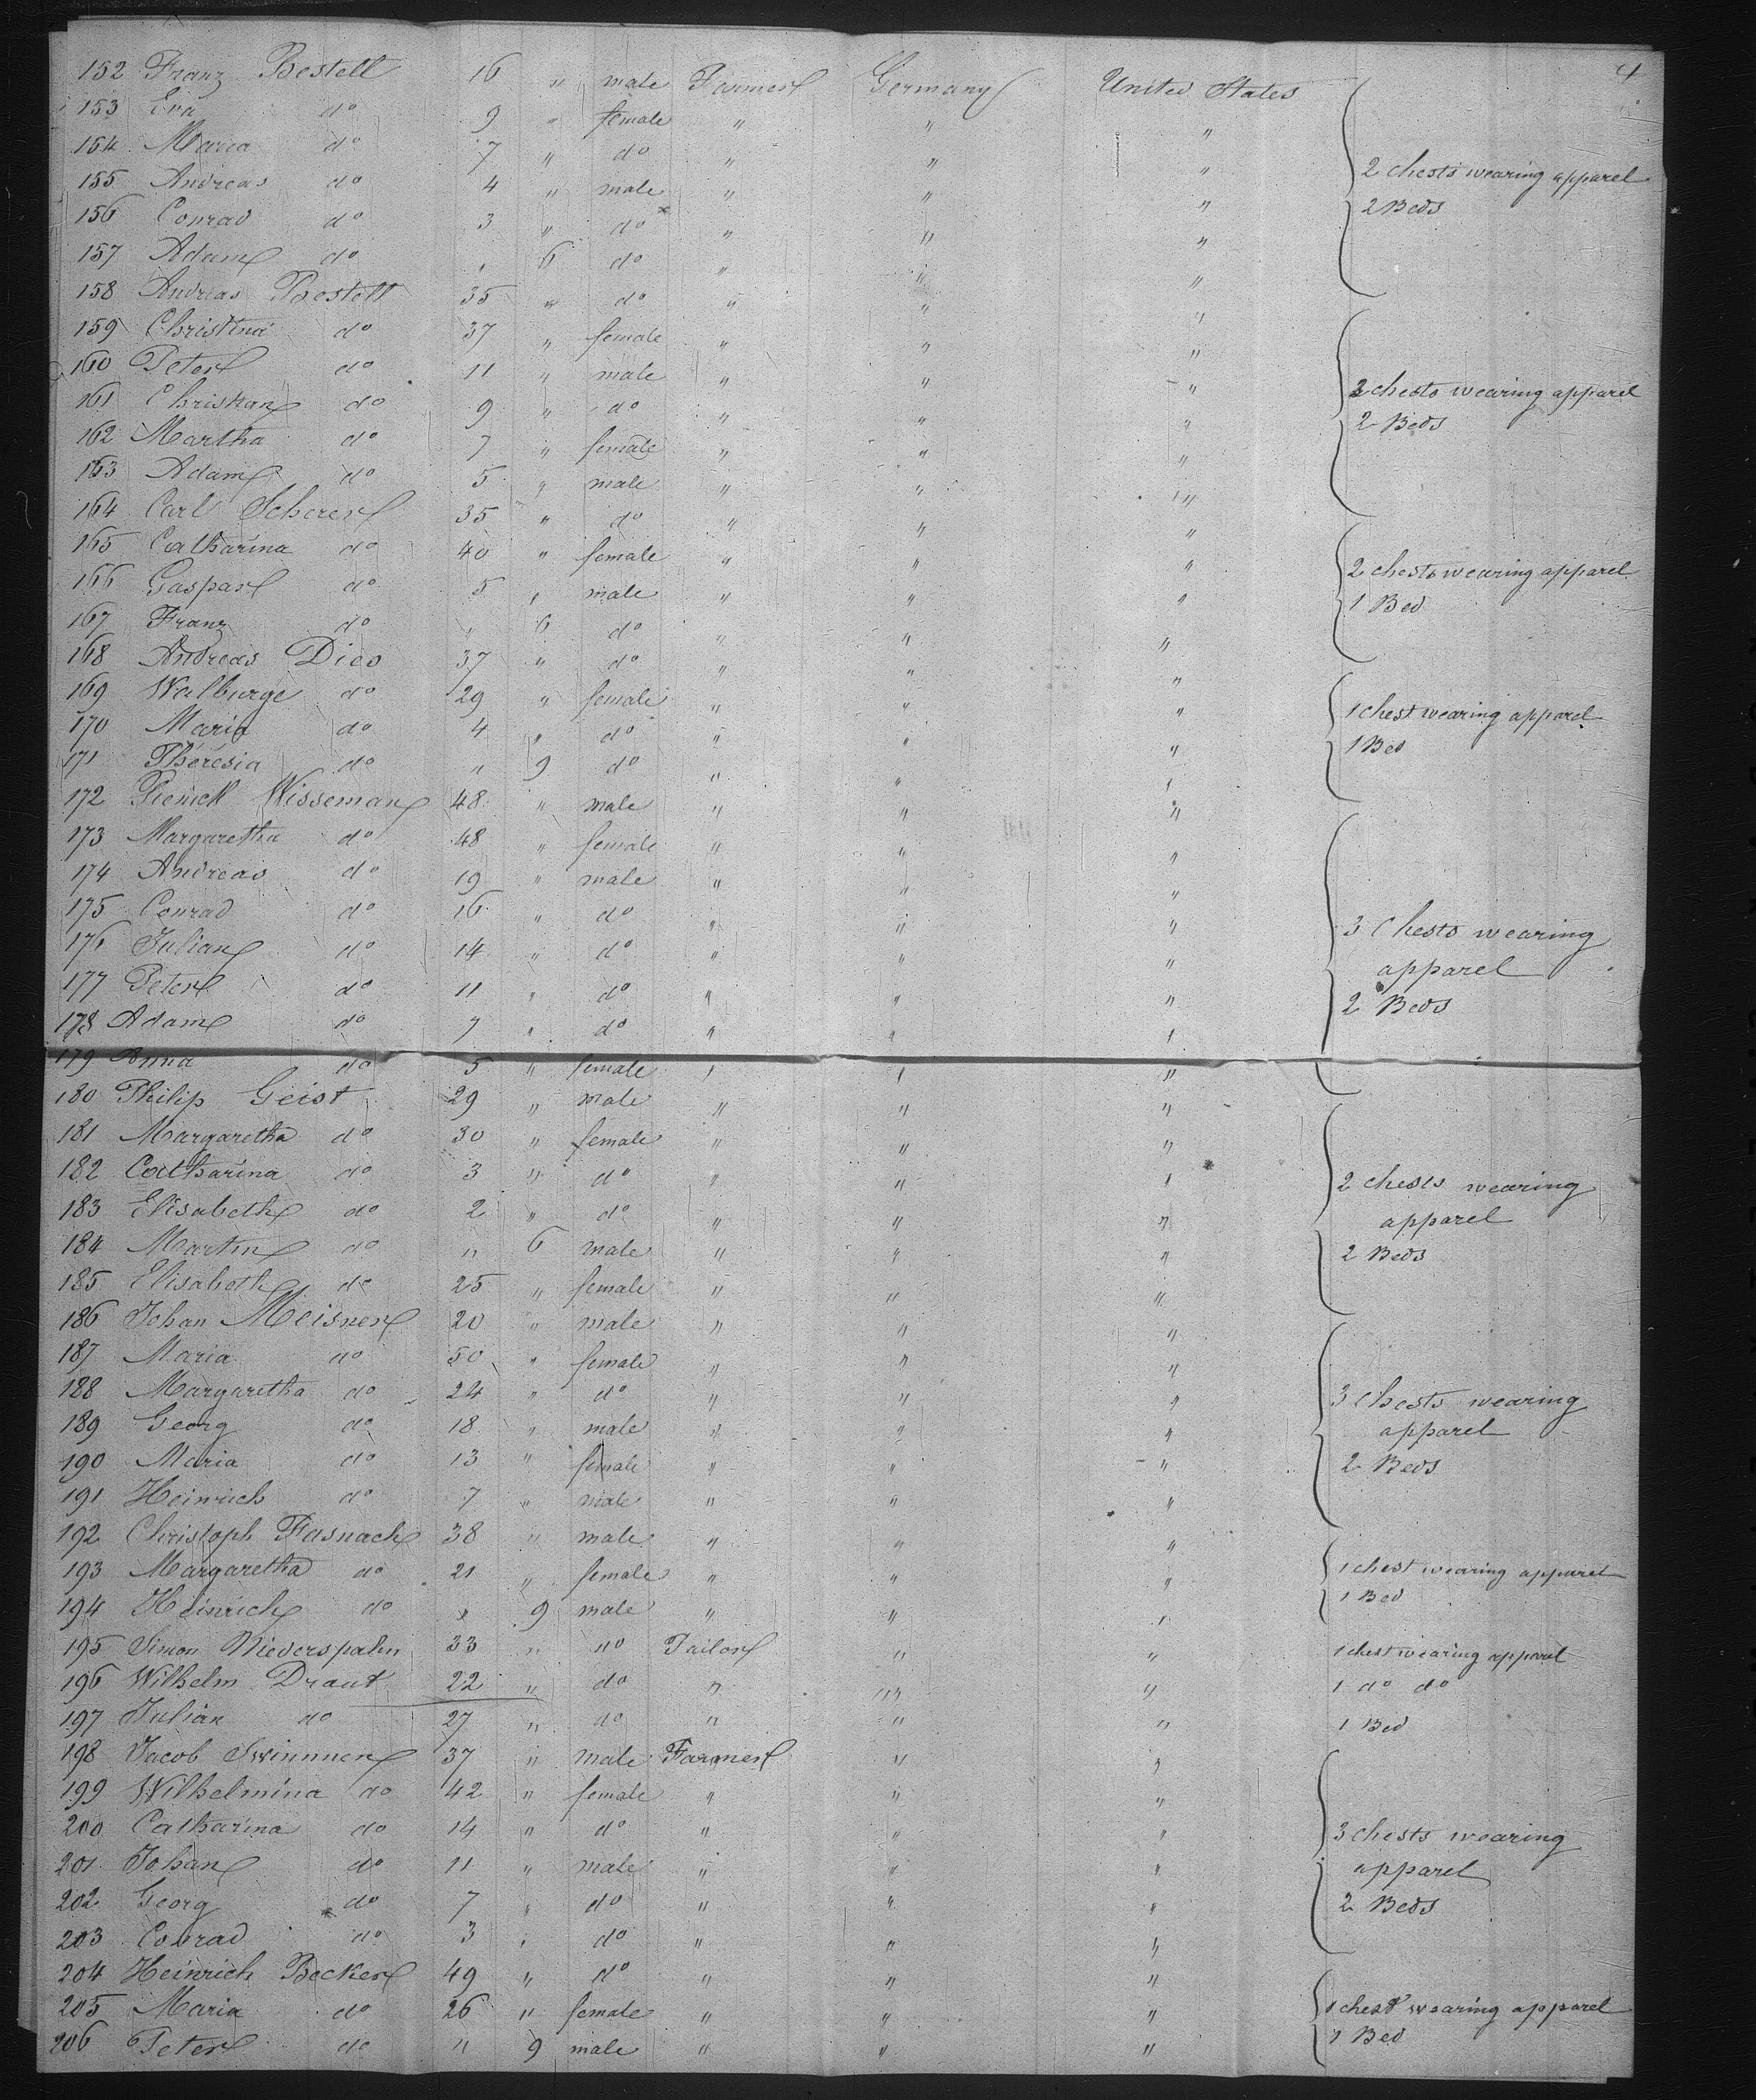 4
152 Franz Bestell 16 " male Farmer Germany United States
153 Eva do 9 " female " " "
154 Maria do 7 " do " " "
155 Andreas do 4 " male " " " 2 chests wearing apparel
156 Conrad do 3 " do " " " 2 Beds
157 Adam do " 6 do " " "
158 Andreas Bestell 35 " do " " "
159 Christina do 37 " female " " "
160 Peter do 11 " male " " "
161 Christian do 9 " do " " " 2 chests wearing apparel
162 Martha do 7 " female " " " 2 Beds
163 Adam do 5 " male " " "
164 Carl Scherer 35 " do " " "
165 Catharina do 40 " female " " " 2 chests wearing apparel
166 Gaspar do 5 " male " " " 1 Bed
167 Franz do " 6 do " " "
168 Andreas Dies 37 " do " " "
169 Walburge do 29 " female " " " 1 chest wearing apparel
170 Maria do 4 " do " " " 1 Bed
171 Théresia do " 9 do " " "
172 Wisseman 48 " male " " "
173 Margaretha do 48 " female " " "
174 Andreas do 19 " male " " "
175 Conrad do 16 " do " " " 3 Chests wearing
176 Julian do 14 " do " " " apparel
177 Peter do 11 " do " " " 2 Beds
178 Adam do 7 " do " " "
179 Anna do 5 " female " " "
180 Philip Geist 29 " male " " "
181 Margaretha do 30 " female " " "
182 Catharina do 3 " do " " " 2 chests wearing
183 Elisabeth do 2 " do " " " apparel
184 Martin do " 6 male " " " 2 Beds
185 Elisabeth do 25 " female " " "
186 Johan Meisner 20 " male " " "
187 Maria do 50 " female " " "
188 Margaretha do 24 " do " " " 3 Chests wearing
189 Georg do 18 " male " " " apparel
190 Maria do 13 " female " " " 2 Beds
191 Heinrich do 7 " male " " "
192 Christoph Fasnach 38 " male " " "
193 Margaretha do 21 " female " " " 1 chest wearing apparel
194 Heinrich do " 9 male " " " 1 Bed
195 Simon Niederspahn 33 " do Tailor " " 1 chest wearing apparel
196 Wilhelm Draut 22 " do " " " 1 do do
197 Julian do 27 " do " " " 1 Bed
198 Jacob Swimmer 37 " male Farmer " "
199 Wilhelmina do 42 " female " " "
200 Catharina do 14 " do " " " 3 chests wearing
201 Johan do 11 " male " " " apparel
202 Georg do 7 " do " " " 2 Beds
203 Conrad do 3 " do " " "
204 Heinrich Becker 49 " do " " "
205 Maria do 26 " female " " " 1 chest wearing apparel
206 Peter do " 9 male " " " 1 Bed